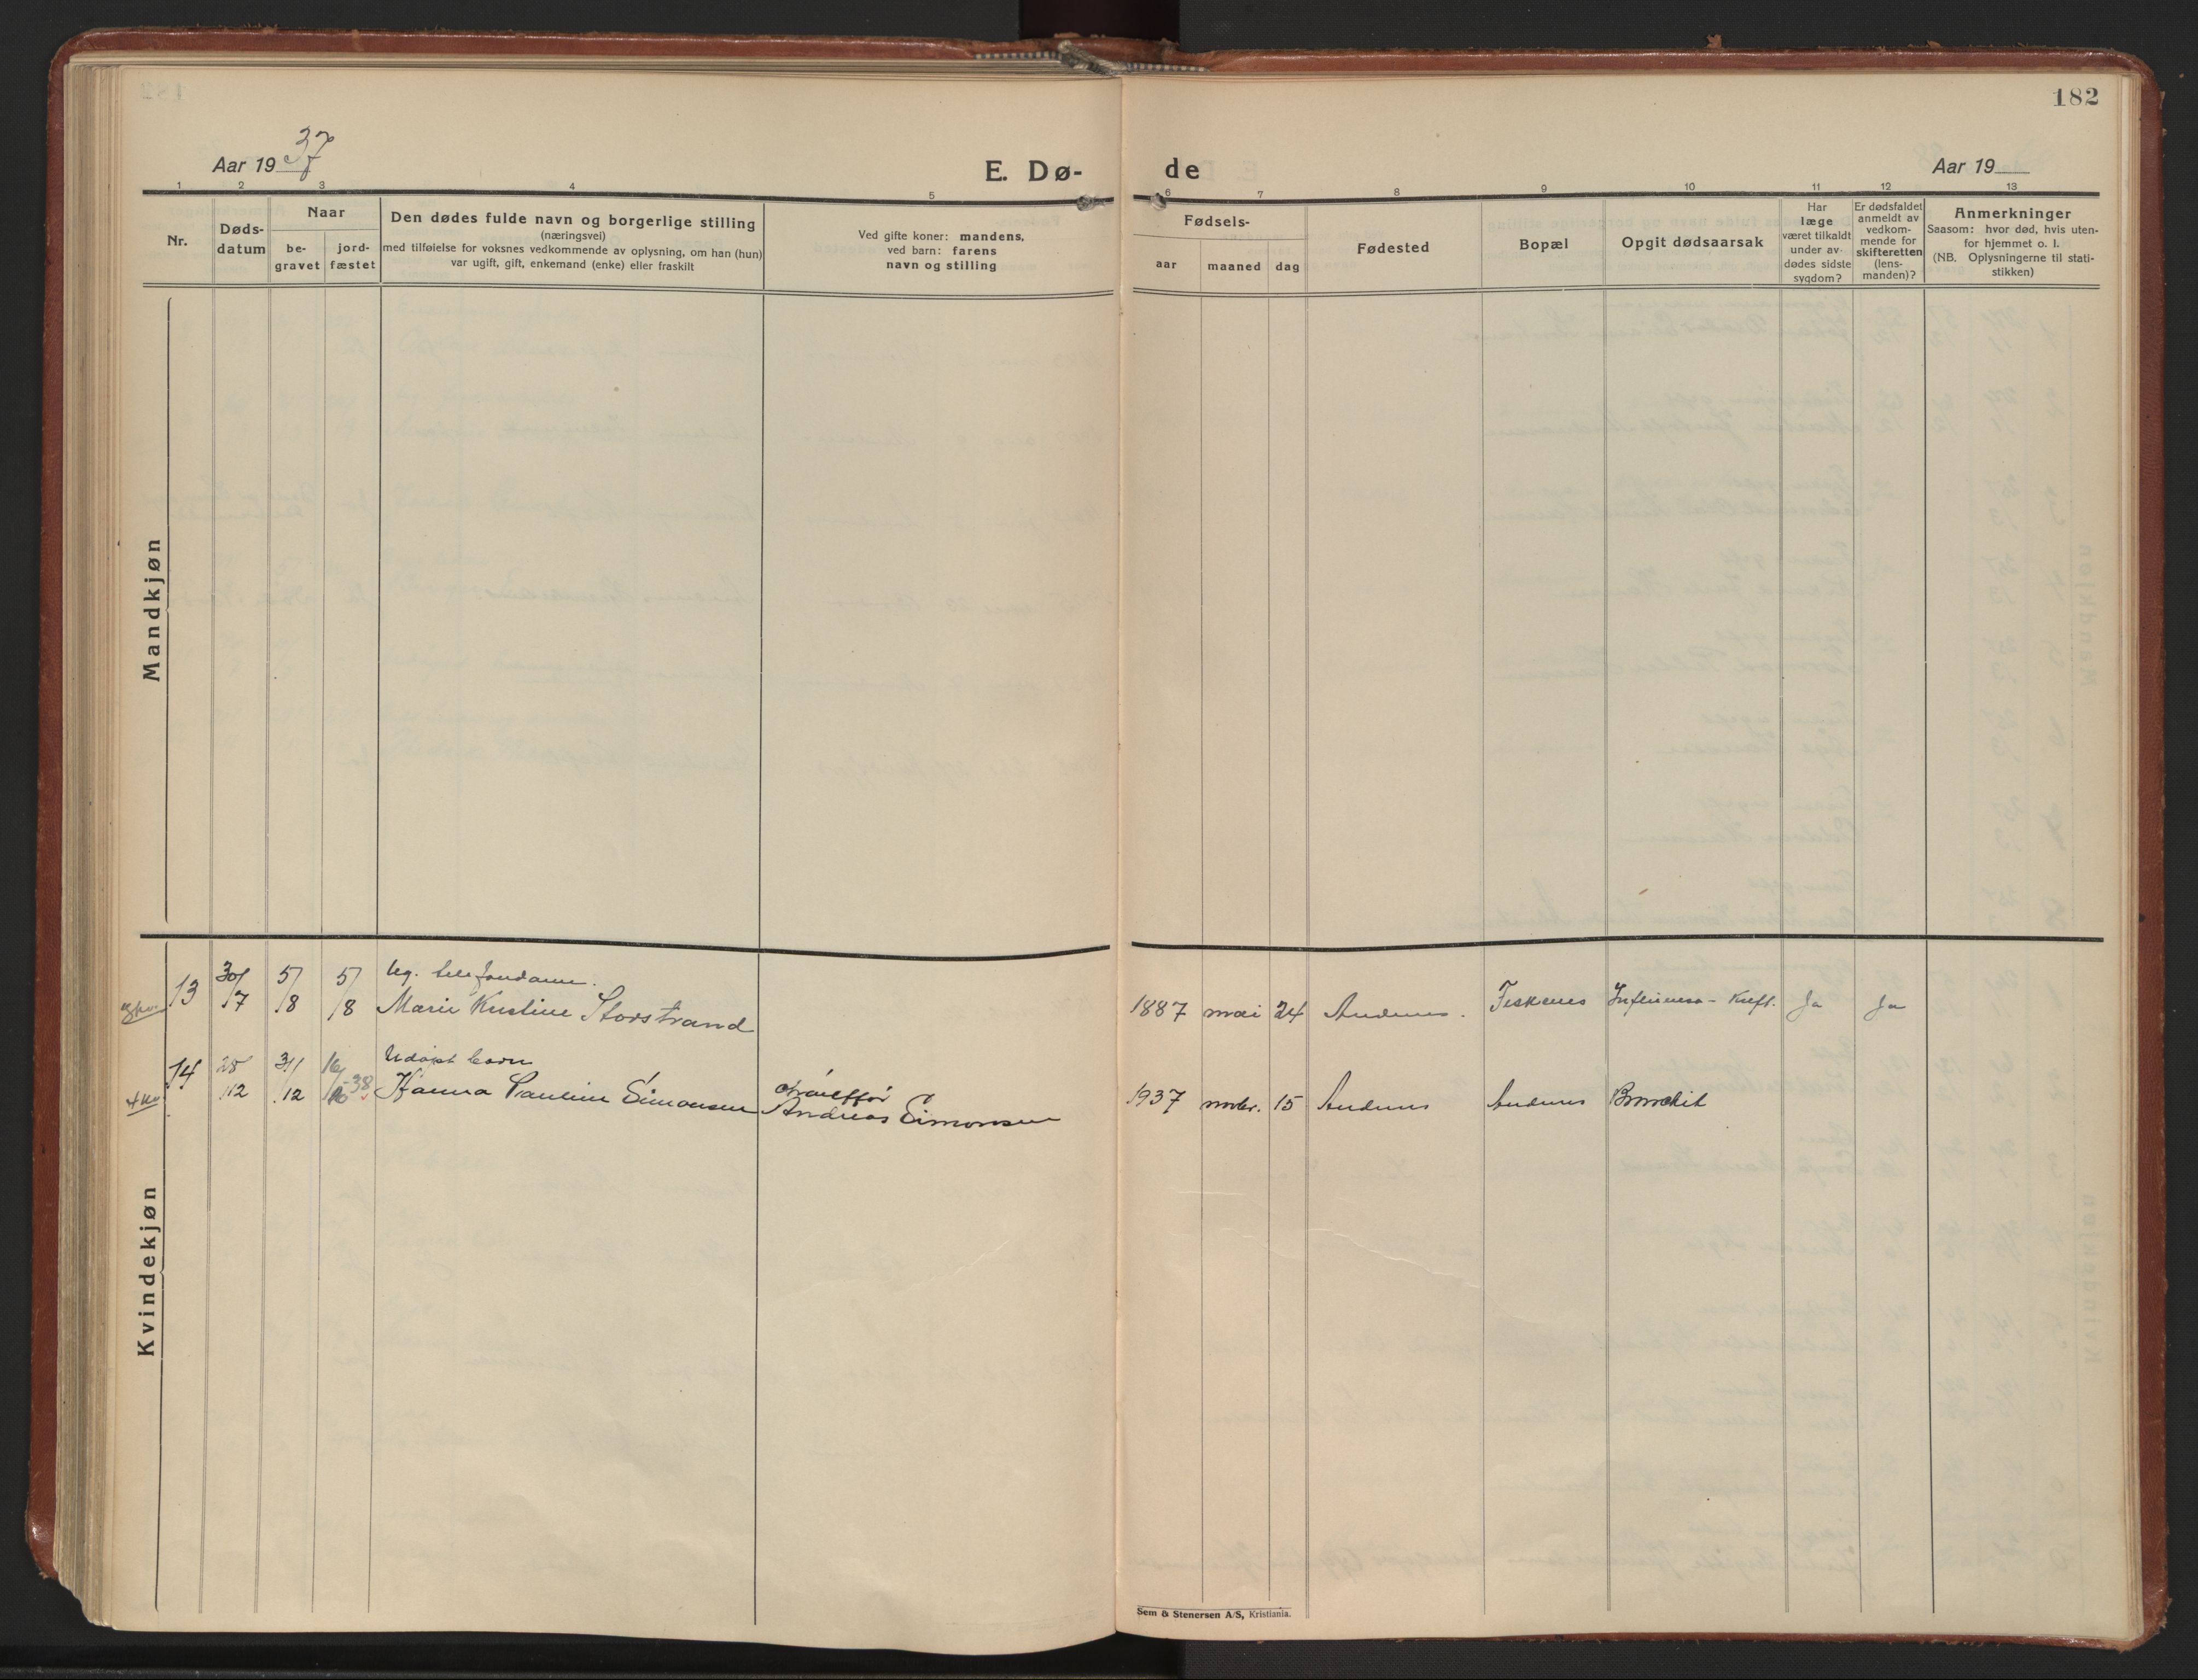 182
Aar 1937
E. Dø-
de
Aar 19
1 2 3 4 5 6 7 8 9 10 11 12 13
Nr.
Døds-
datum
Naar
be-
gravet
jord-
fæstet
Den dødes fulde navn og borgerlige stilling
(næringsvei)
med tilføielse for voksnes vedkommende av oplysning, om han (hun)
var ugift, gift, enkemand (enke) eller fraskilt
Ved gifte koner: mandens,
ved barn: farens
navn og stilling
Fødsels-
aar
maaned
dag
Fødested
Bopæl
Opgit dødsaarsak
Har
læge
været tilkaldt
under av-
dødes sidste
sygdom?
Er dødsfaldet
anmeldt av
vedkom-
mende for
skifteretten
(lens-
manden)?
Anmerkninger
Saasom: hvor død, hvis uten-
for hjemmet o. l.
(NB. Oplysningerne til stati-
stikken)
Mandkjøn
Kvindekjøn
13 30/7 5/8 5/8 Ug. telefondame.
Marie Kristine Storstrand
1887 mai 24 Andenes. Fiskenes Influensa - Kreft. Ja Ja
14 28/12 31/12 Udøpt barn
Hanna Pauline Simonsen
Andreas Simonsen
1937 novbr. 15 Andenes Andenes Bronchit
Sem & Stenersen A/S, Kristiania.